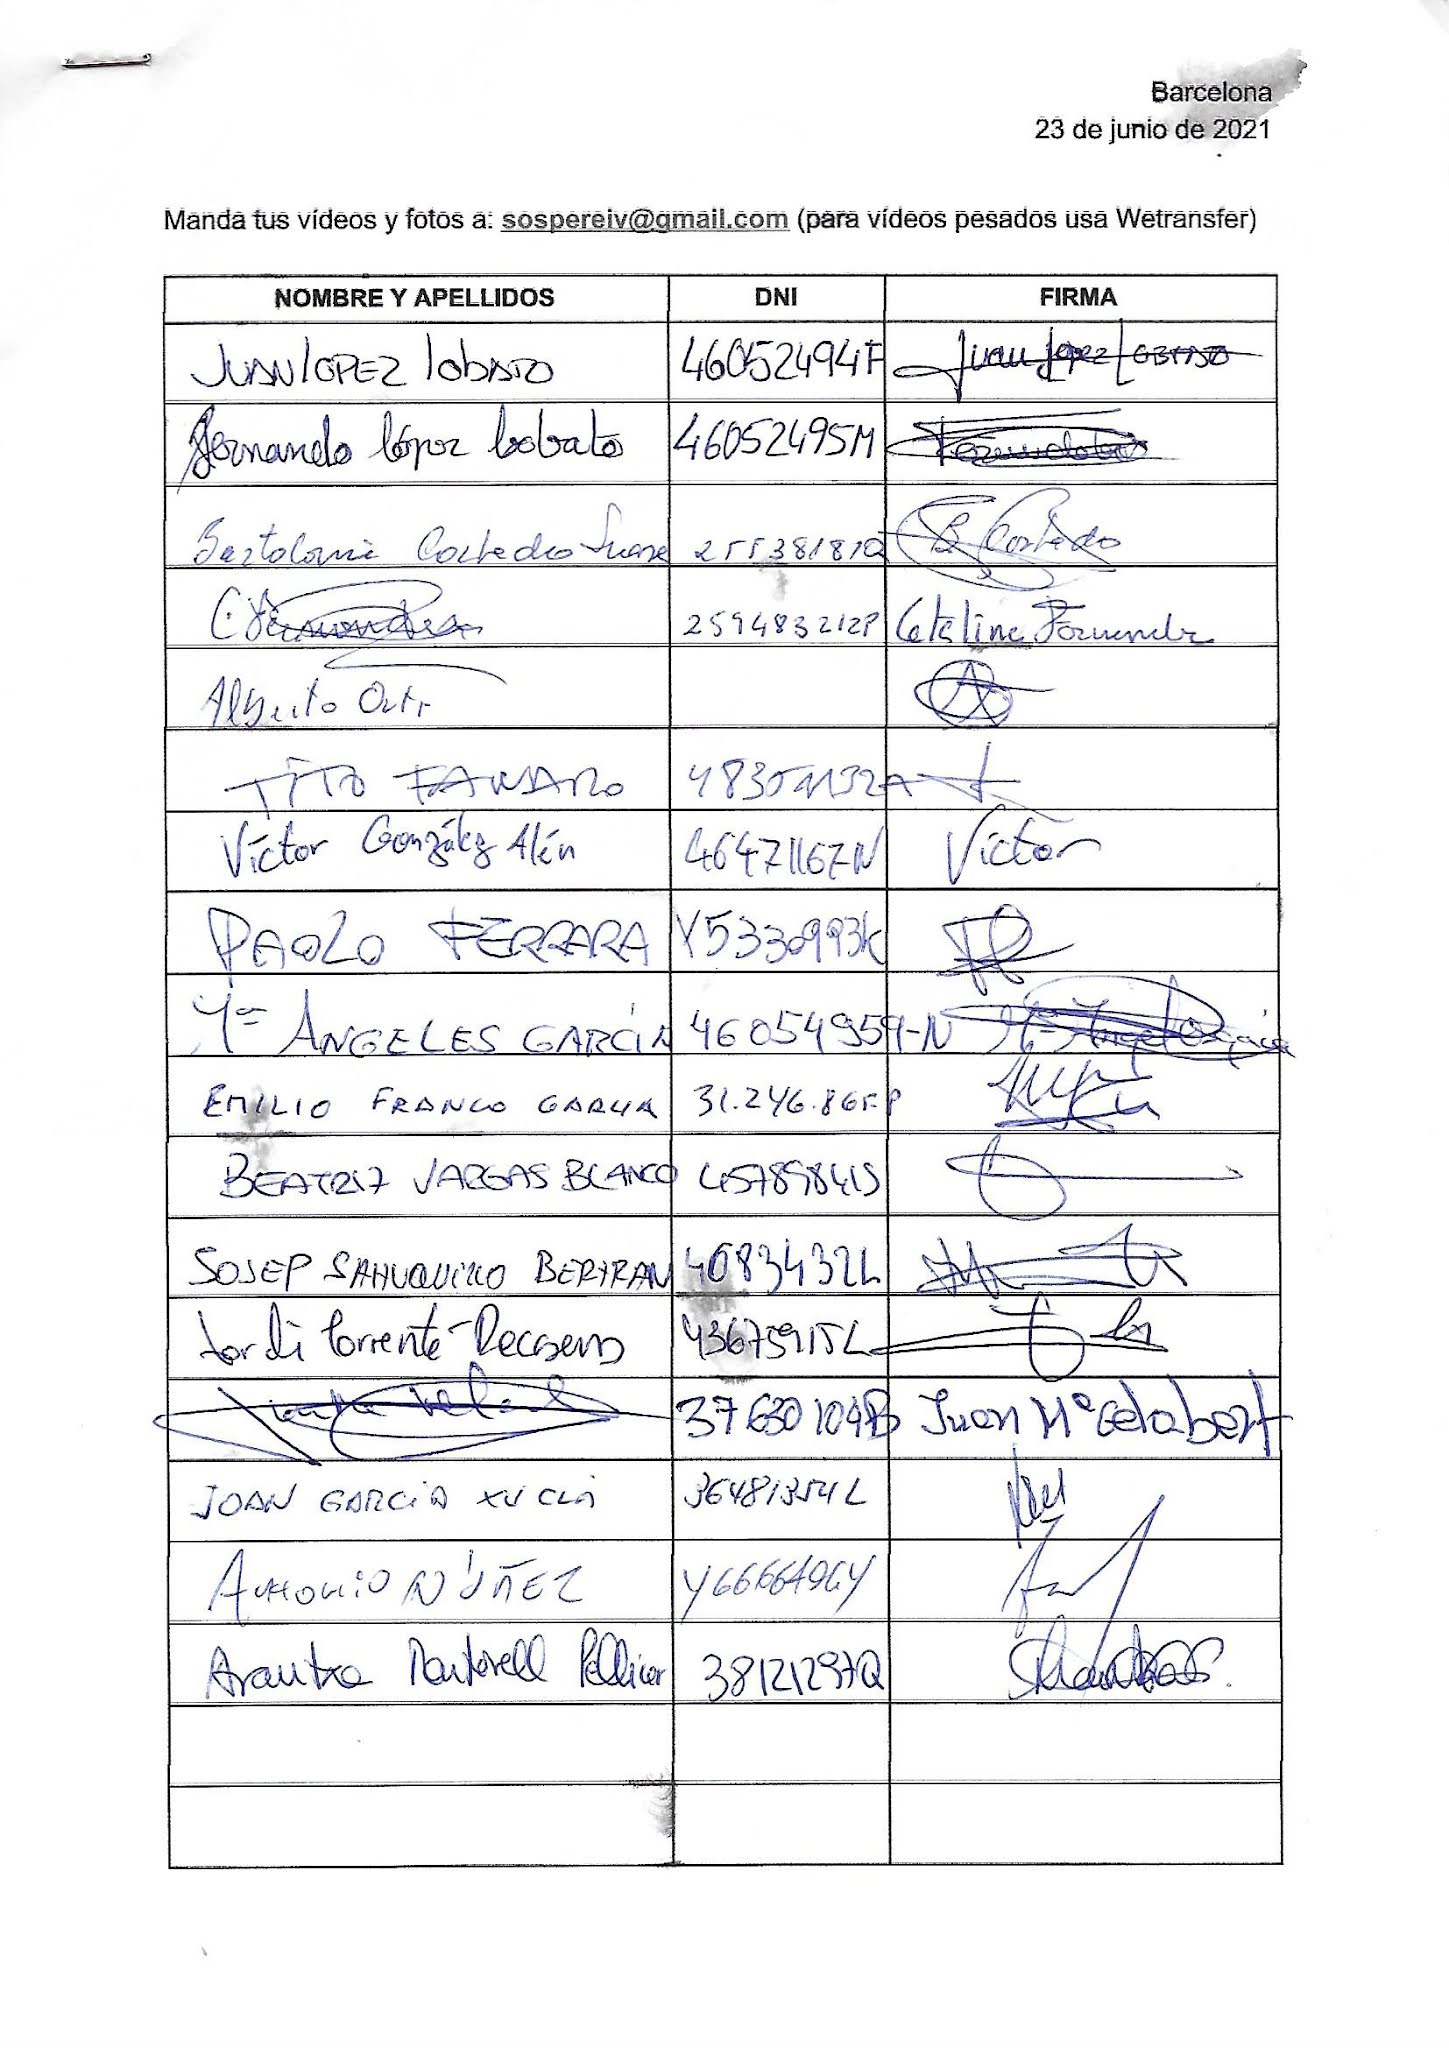 Barcelona
23 de junio de 2021
Manda tus vídeos y fotos a: sospereiv@gmail.com (para vídeos pesados usa Wetransfer)
NOMBRE Y APELLIDOS DNI FIRMA
JUAN LOPEZ lobato 46052494F Juan Lopez Lobato
Fernando lópez Lobato 46052495M
Cortedo B Cortedo
Catalina Fernandez
Alberto
TITO
Víctor González Alén 46471167N Víctor
PAOLO FERRARA Y5330993K
Mª ANGELES GARCÍA 46054959-N Mª Angeles García
EMILIO FRANCO GARCIA
BEATRIZ VARGAS BLANCO 45789841S
JOSEP SAHUQUILLO BERTRAN 40834322L
Jordi Torrente Decasens 43675915L
37630104B Juan Mª Gelabert
JOAN GARCIA XUCLÀ
ANTONIO NÚÑEZ
Arantxa Martorell Pellicer 38121297Q